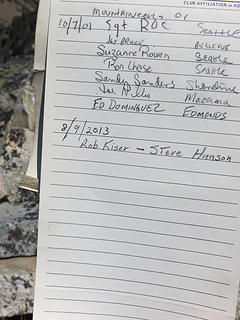 CLUB AFFILIATION or AD
MOUNTAINEERS OI
10/7/01 Sgt ROC Seattle
BELLEVUE
Suzanne Rowen Seattle
Ron Chase Seattle
Sandy Sanders Shoreline
Joe Mazama
ED DOMINGUEZ EDMONDS
8/9/2013
Rob Kiser - STeve Hanson